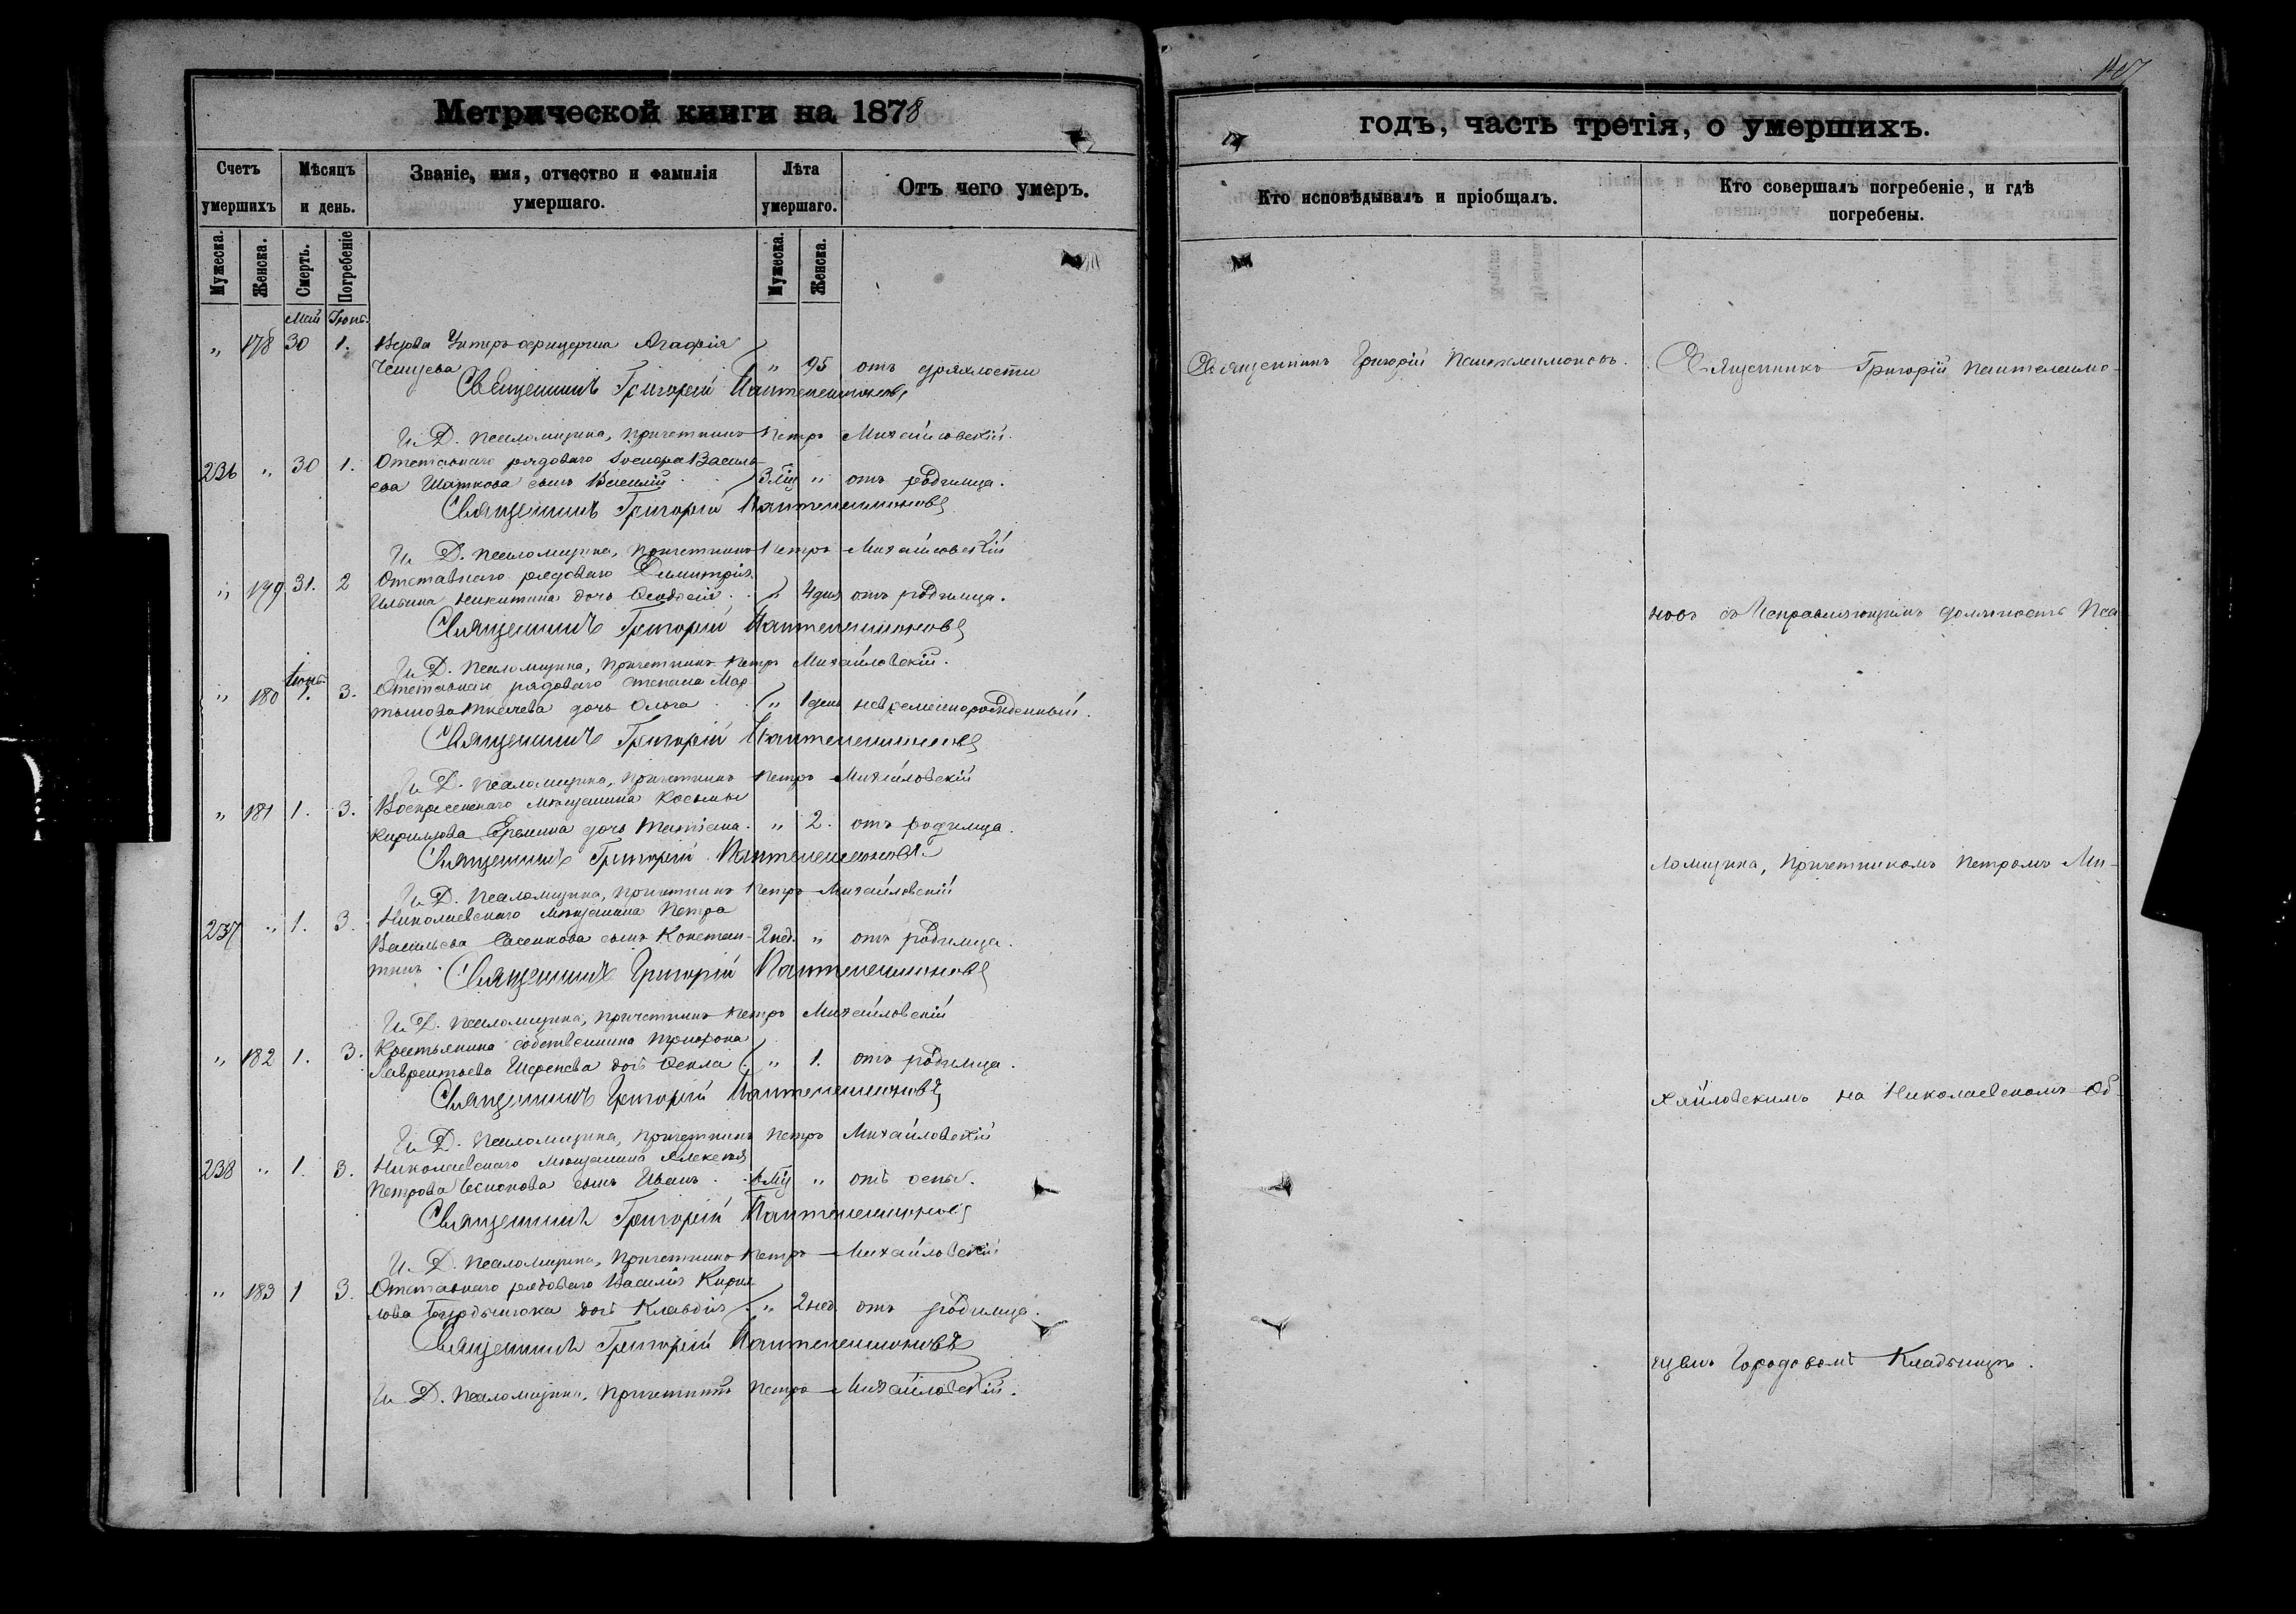 Метрической книги на 1878
Счетъ умершихъ
Мѣсяцъ и день.
Званіе, имя, отчество и фамилія умершаго.
Лѣта умершаго.
Отъ чего умеръ.
Мужеска. Женска. Смерть. Погребеніе Мужеска. Женска.
Май Іюнь
" 178 30 1. Вдова Унтеръ-офицерша Агафія
" 95 отъ дряхлости
Священникъ Григорій Пантелеимоновъ
И. Д. Псаломщика, Причетникъ Петръ Михайловскій.
236 " 30 1. Отставнаго рядоваго Василь-
ева сынъ Василій 3 " отъ родимца.
Священникъ Григорій Пантелеимоновъ
И. Д. Псаломщика, Причетникъ Петръ Михайловскій
" 179 31. 2 Отставнаго рядоваго Димитрія
Ильина Никитина дочь Феодосія " 4 дня отъ родимца.
Священникъ Григорій Пантелеимоновъ
И. Д. Псаломщика, Причетникъ Петръ Михайловскій.
Іюнь
" 180 1. 3. Отставнаго рядоваго Степана Мар-
тынова дочь Ольга " 1 день
Священникъ Григорій Пантелеимоновъ
И. Д. Псаломщика, Причетникъ Петръ Михайловскій
" 181 1. 3. Воскресенскаго Мѣщанина Косьмы
Кирилова Еремина дочь Татіана. " 2. отъ родимца.
Священникъ Григорій Пантелеимоновъ
И. Д. Псаломщика, Причетникъ Петръ Михайловскій
237 " 1. 3. Николаевскаго Мѣщанина Петра
Васильева сынъ Констан- 2 нед. " отъ родимца.
тинъ. Священникъ Григорій Пантелеимоновъ
И. Д. Псаломщика, Причетникъ Петръ Михайловскій
" 182 1. 3. Крестьянина собственника Трифона
Лаврентьева дочь Фекла " 1. отъ родимца.
Священникъ Григорій Пантелеимоновъ
И. Д. Псаломщика, Причетникъ Петръ Михайловскій
238 " 1. 3. Николаевскаго Мѣщанина Алексѣя
Петрова сынъ Иванъ " отъ оспы.
Священникъ Григорій Пантелеимоновъ
И. Д. Псаломщика, Причетникъ Петръ Михайловскій
" 183 1 3. Отставнаго рядоваго Василія Кирил-
лова дочь Клавдія " 2 нед. отъ родимца.
Священникъ Григорій Пантелеимоновъ
И. Д. Псаломщика, Причетникъ Петръ Михайловскій.
годъ, часть третія, о умершихъ.
Кто исповѣдывалъ и пріобщалъ.
Кто совершалъ погребеніе, и гдѣ погребены.
Священникъ Григорій Пантелеимоновъ.
Священникъ Григорій Пантелеимо-
новъ съ Исправляющимъ должность Пса-
ломщика, Причетникомъ Петромъ Ми-
хайловскимъ на Николаевскомъ Об-
щемъ Городовомъ Кладбищѣ.